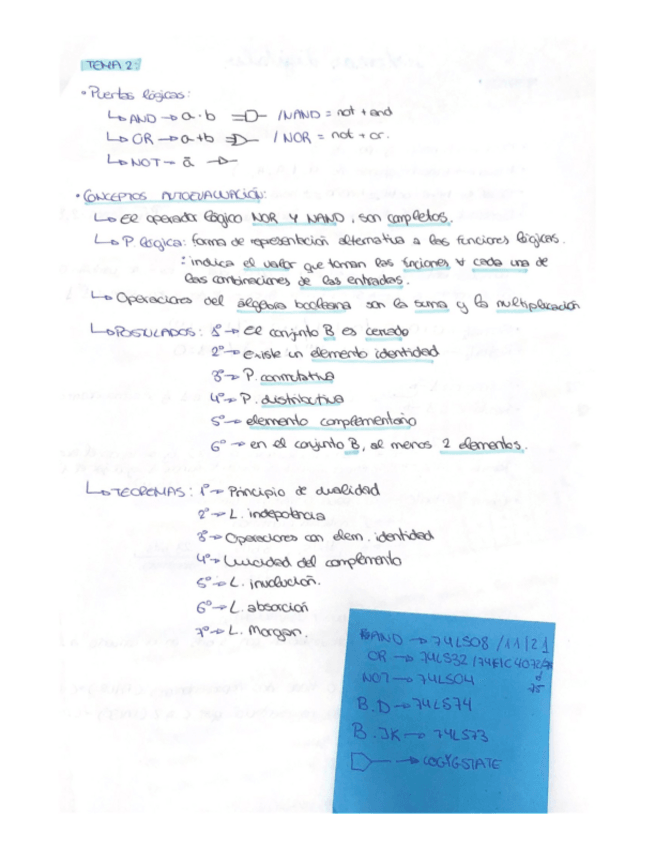 TEMA 2:
• Puertas lógicas:
↳ AND → a·b / NAND = not + and
↳ OR → a+b / NOR = not + or.
↳ NOT → ā
• CONCEPTOS AUTOEVALUACIÓN:
↳ El operador lógico NOR Y NAND, son completos.
↳ P. lógica: forma de representación alternativa a las funciones lógicas.
: indica el valor que toman las funciones ∀ cada una de
las combinaciones de las entradas.
↳ Operaciones del álgebra booleana son la suma y la multiplicación
↳ POSTULADOS: 1º → el conjunto B es cerrado
2º → existe un elemento identidad
3º → P. conmutativa
4º → P. distributiva
5º → elemento complementario
6º → en el conjunto B, al menos 2 elementos.
↳ TEOREMAS: 1º → Principio de dualidad
2º → L. indepotencia
3º → Operaciones con elem. identidad
4º → Unicidad del complemento
5º → L. involución.
6º → L. absorción
7º → L. Morgan.
AND → 74LS08 /11/21
OR → 74LS32 /
NOT → 74LS04
B.D → 74LS74
B.JK → 74LS73
→ LOGICSTATE